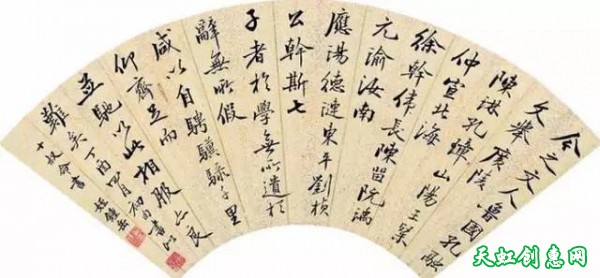 今之文人魯國孔融
文舉廣陵
陳琳孔璋山陽王粲
仲宣北海
徐幹偉長陳留阮瑀
元瑜汝南
應瑒德璉東平劉楨
公幹斯七
子者於學無所遺於
辭無所假
咸以自騁驥騄千里
仰齊足而
並馳以此相服亦良
難矣丁酉四月初旬書
十叔命書
天虹创惠网